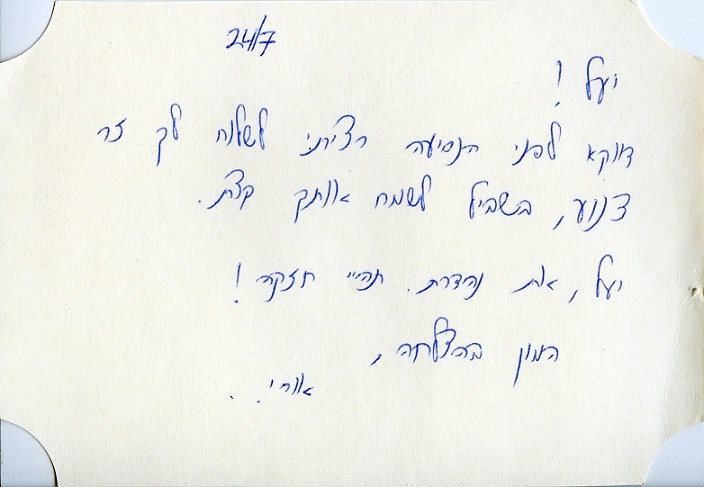 24/7
יעל!
דווקא לפני הנסיעה רציתי לשלוח לך זר
צנוע, בשביל לשמח אותך קצת.
יעל, את נהדרת. תהיי חזקה!
המון בהצלחה,
אורי.